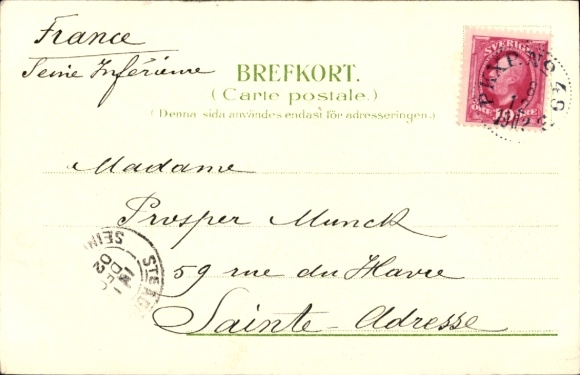 France
Seine Inférieure
BREFKORT.
(Carte postale.)
(Denna sida användes endast för adresseringen.)
SVERIGE
PKXP. No 49
1902
Madame
Prosper Munck
59 rue du Havre
Sainte-Adresse
STE
SEIN
02